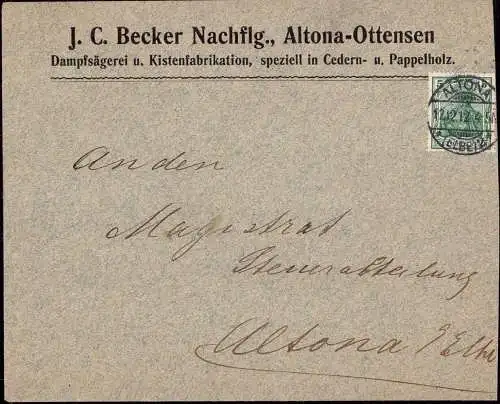 J. C. Becker Nachflg., Altona-Ottensen
Dampfsägerei u. Kistenfabrikation, speziell in Cedern- u. Pappelholz.
ALTONA
12.12.12. 4-5N
(ELBE)
An den
Magistrat
Steuerabteilung
Altona / Elbe